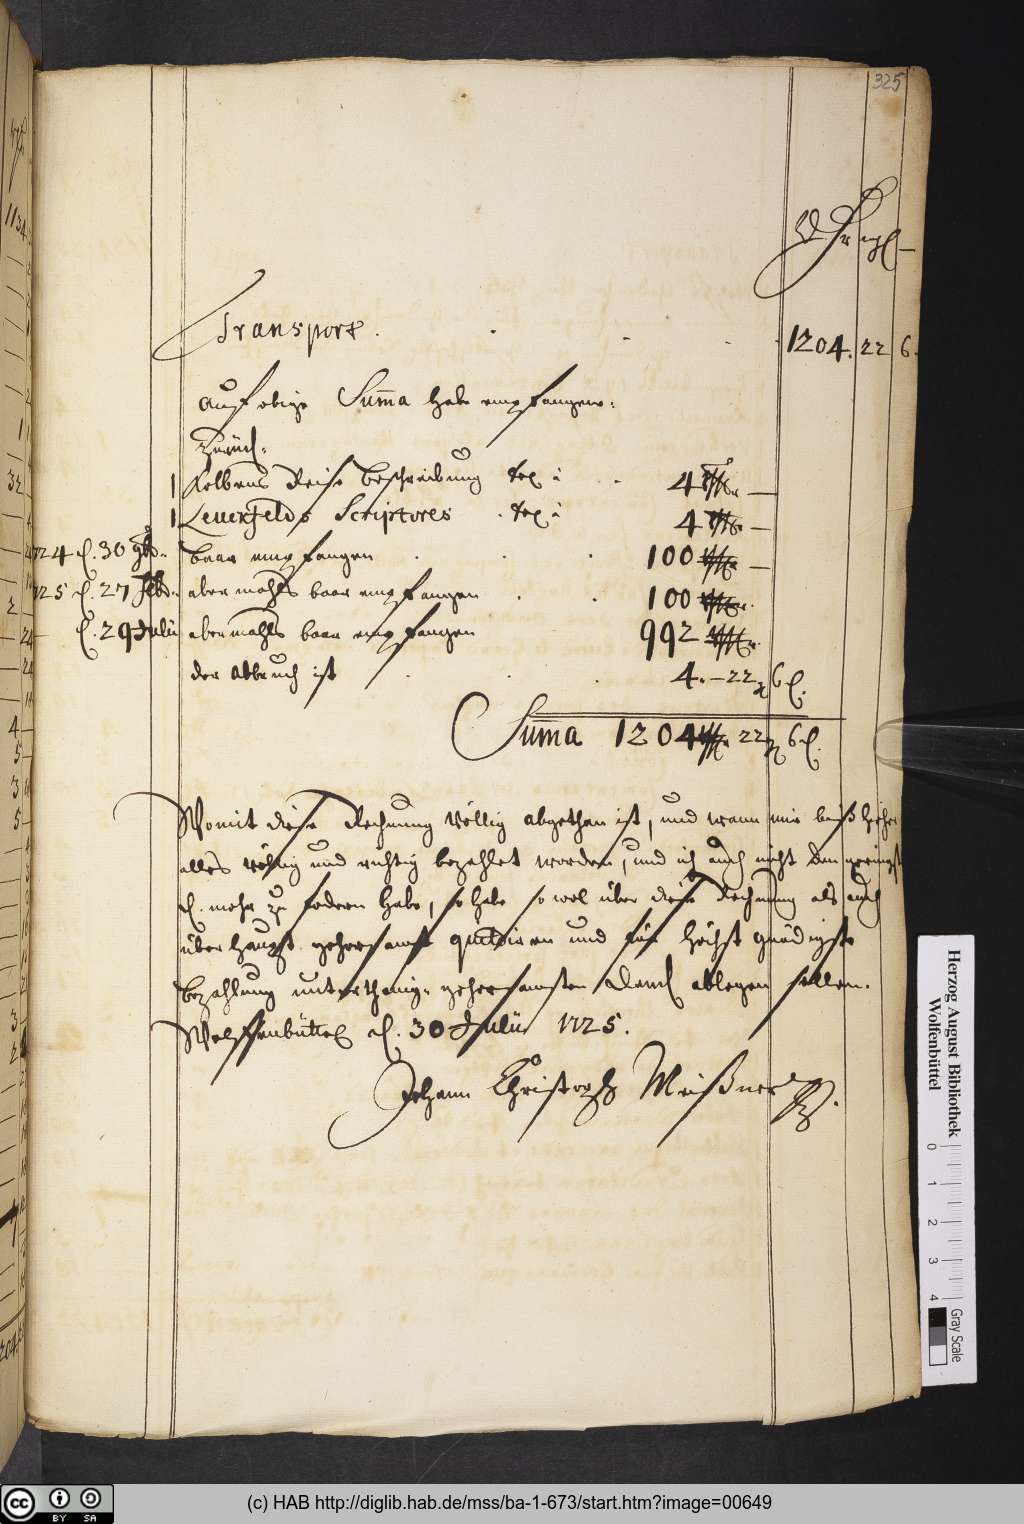 325
Transport. 1204. 22 6.
auf obige Sum̅a habe empfangen:
zurück:
1 Kolbens Reise beschreibung 4
1 Leuckfelds Scriptores 4
724 d. 30 9br. baar empfangen 100
725 d. 27 Febr. abermahls baar empfangen 100
d. 29 Julii abermahls baar empfangen 992
der abbruch ist 4. – 22 6
Sum̅a 1204 22 6
Womit diese Rechnung völlig abgethan ist, und wann mir biß hieher
alles völlig und richtig bezahlet worden, und ich auch nicht den geringst
d. mehr zu fodern habe, so habe so wol über diese Rechnung als auch
überhaupt gehorsamst quittiren und für höchst gnädigste
bezahlung unterthänig-gehorsamsten Danck ablegen sollen.
Wolffenbüttel d. 30 Julii 1725.
Johann Christoph Meißner
Herzog August Bibliothek
Wolfenbüttel
0 1 2 3 4
Gray Scale
cc BY SA
(c) HAB http://diglib.hab.de/mss/ba-1-673/start.htm?image=00649